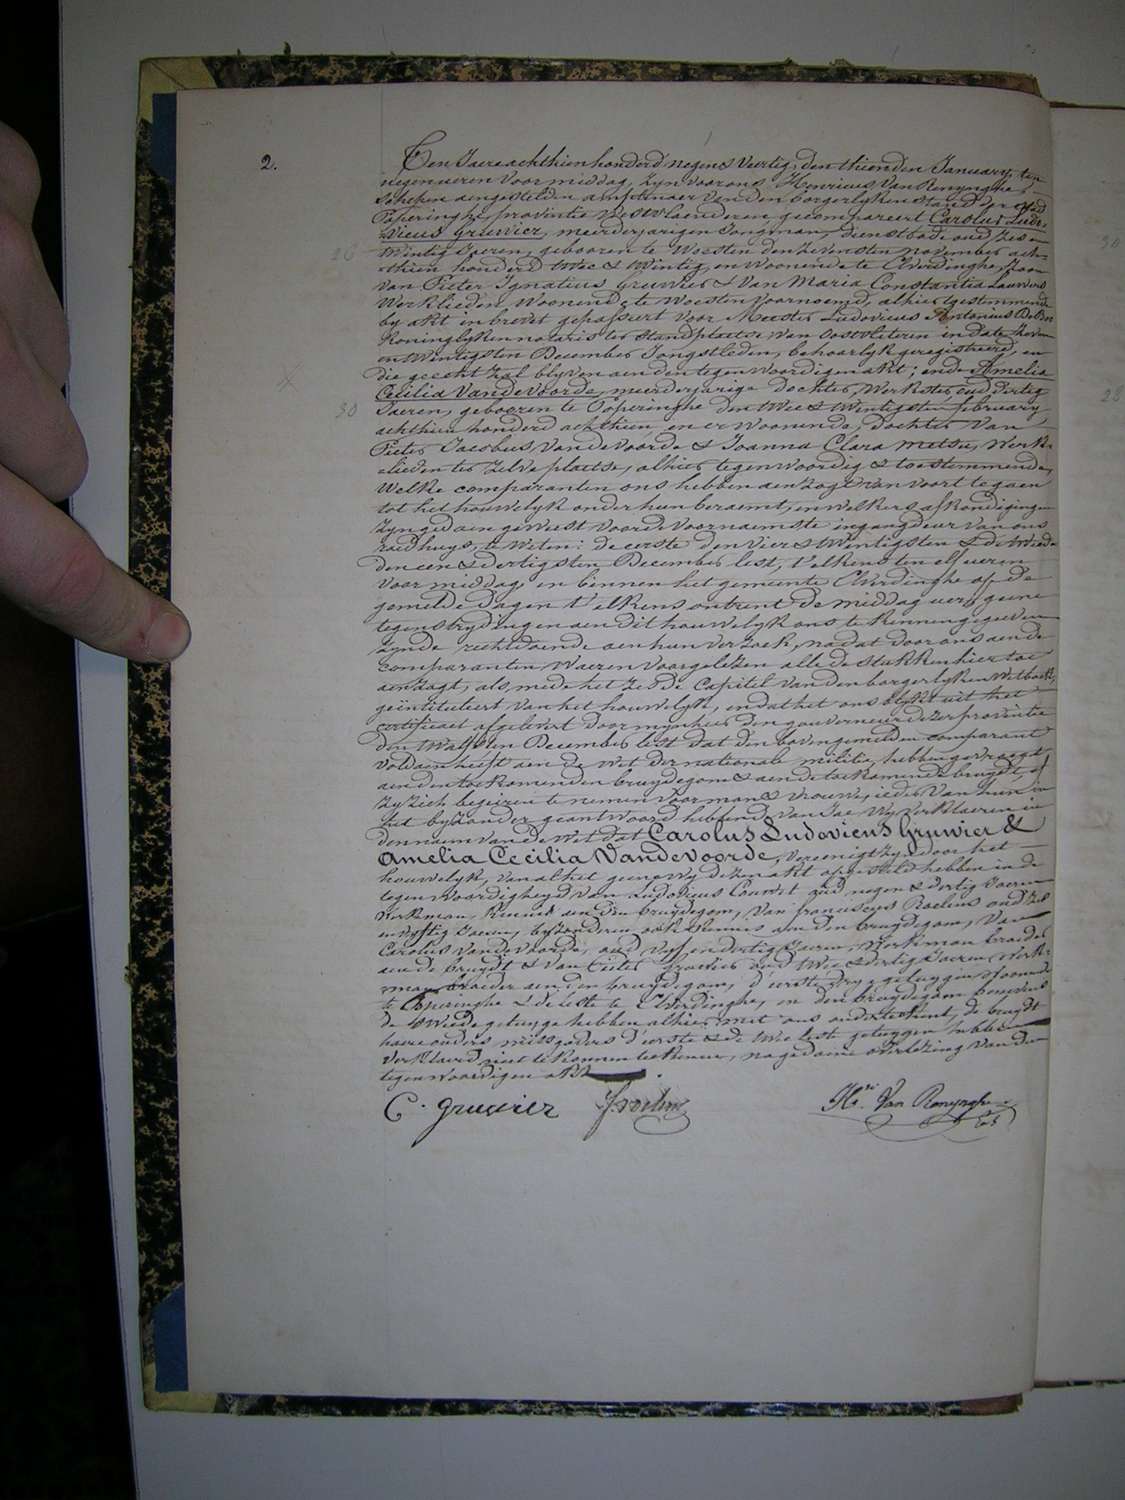 2.
Ten Jaere achthien honderd negen & veertig, den thienden January, ten
negen ueren voormiddag, zyn voor ons Henricus Van Renynghe,
schepen aengestelden amptenaer van den borgerlyken stand der stad
Poperinghe, provintie Westvlaenderen gecompareert Carolus Ludo-
vicus Gruwier, meerderjarigen Jongman, dienstbode oud zes en
26
twintig Jaeren, gebooren te Woesten den zevensten November ach-
thien honderd twee & twintig, en woonende te Elverdinghe, zoon
van Pieter Ignatius Gruwier & van Maria Constantia Lauwers
Werklieden, woonende te Woesten voornoemd, alhier toestemmende
by akt in brevet gepasseert voor Meester Ludovicus Antonius De
Koninglyken notaris ter standplaetse van Oostvleteren in date zeven
en twintigsten December Jongstleden, behoorlyk geregistreerd, en
die gehecht zal blyven aen den tegenwoordigen akt; ende Amelia
Cecilia Vandevoorde, meerderjarige dochter, Werkster oud dertig
30
Jaeren, gebooren te Poperinghe den twee & twintigsten february
achthien honderd achthien, en er woonende, dochter van
Pieter Jacobus Vandevoorde & Joanna Clara Metsu, Werk-
lieden ter zelve plaetse, alhier tegenwoordig & toestemmende,
Welke comparanten ons hebben aenzogt van voort te gaen
tot het houwelyk onder hun beraemt, en welkers afkondigingen
zyn gedaen geweest voor de voornaemste ingangdeur van ons
raedhuys, te weten: de eerste den vier & twintigsten & de tweede
den een & dertigsten December lest, t'elkens ten elf ueren
voormiddag en binnen het gemeente Elverdinghe op de
gemelde dagen t'elkens ontrent de middag uer, geene
tegenstrydingen aen dit houwelyk ons te kennen gegeven
zynde rechtdoende aen hun verzoek, na dat door ons aen de
comparanten waeren voorgelezen alle de stukken hier toe
aenzogt, als mede het zesde Capitel van den borgerlyken Wetboek,
geïntituleert van het houwelyk, en dat het ons blykt uit het
certificaet afgelevert door mynheer den gouverneur dezer provintie
den twalfsten December lest dat den bovengemelden comparant
voldaen heeft aen de wet der nationale militie, hebben gevraegd
aen den toekomenden bruydegom & aen de toekomende bruydt of
zy zich begeiren te nemen voor man & vrouwe, ieder van hun in
het byzonder geantwoord hebbende van Jae, Wy verklaeren in
den naem van de Wet dat Carolus Ludovicus Gruwier &
Amelia Cecilia Vandevoorde, vereenigt zyn door het
houwelyk, van al het geene wy dezen akt opgesteld hebben in de
tegenwoordigheyd van Ludovicus oud negen & dertig Jaeren
Werkman, kennis aen den bruydegom, van franciscus Roelens oud zes
en vyftig Jaeren, byzonderen ook kennis aen den bruydegom, van
Carolus Vandevoorde, oud vyf en dertig Jaeren, Werkman broeder
aen de bruydt & van Pieter Gruwier oud twee & dertig Jaeren, Werk-
man, broeder aen den bruydegom, d'eerste dry getuygen woonende
te Poperinghe & de leste te Elverdinghe, en den bruydegom benevens
de tweede getuyge hebben alhier met ons onderteekent, de bruydt
haere ouders mitsgaders d'eerste & de twee lest getuygen hebben
verklaerd niet te konnen teekenen, na gedaene overlezing van den
tegenwoordigen akt.
C. gruwier
Hri. Van Renynghe
30
28